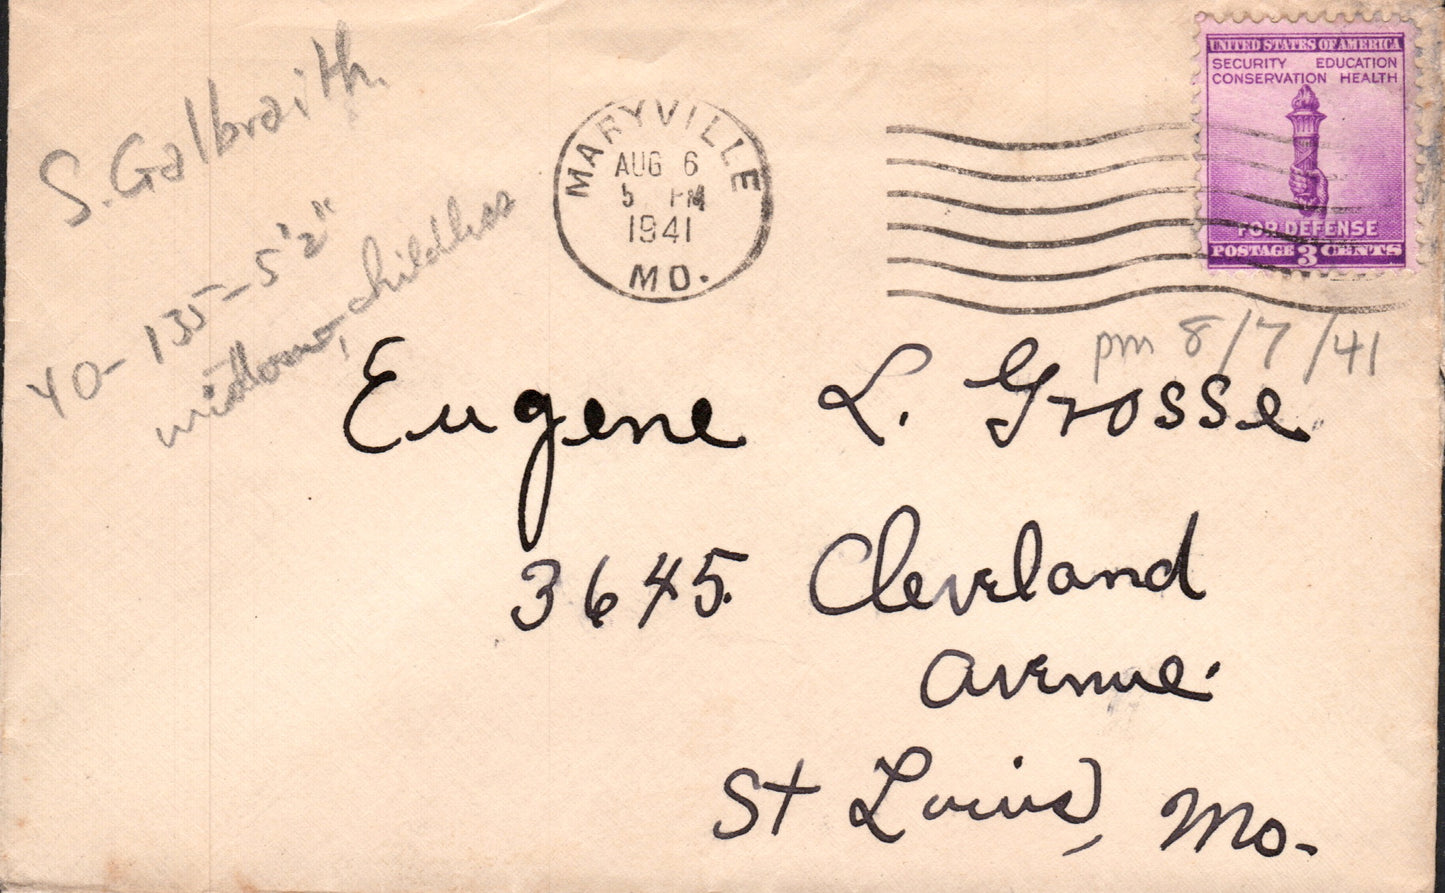 S. Galbraith.
40-135-5'2"
widow, childless
MARYVILLE
AUG 6
5 PM
1941
MO.
UNITED STATES OF AMERICA
SECURITY EDUCATION
CONSERVATION HEALTH
FOR DEFENSE
POSTAGE 3 CENTS
pm 8/7/41
Eugene L. Grosse
3645 Cleveland
Avenue.
St Louis, Mo.